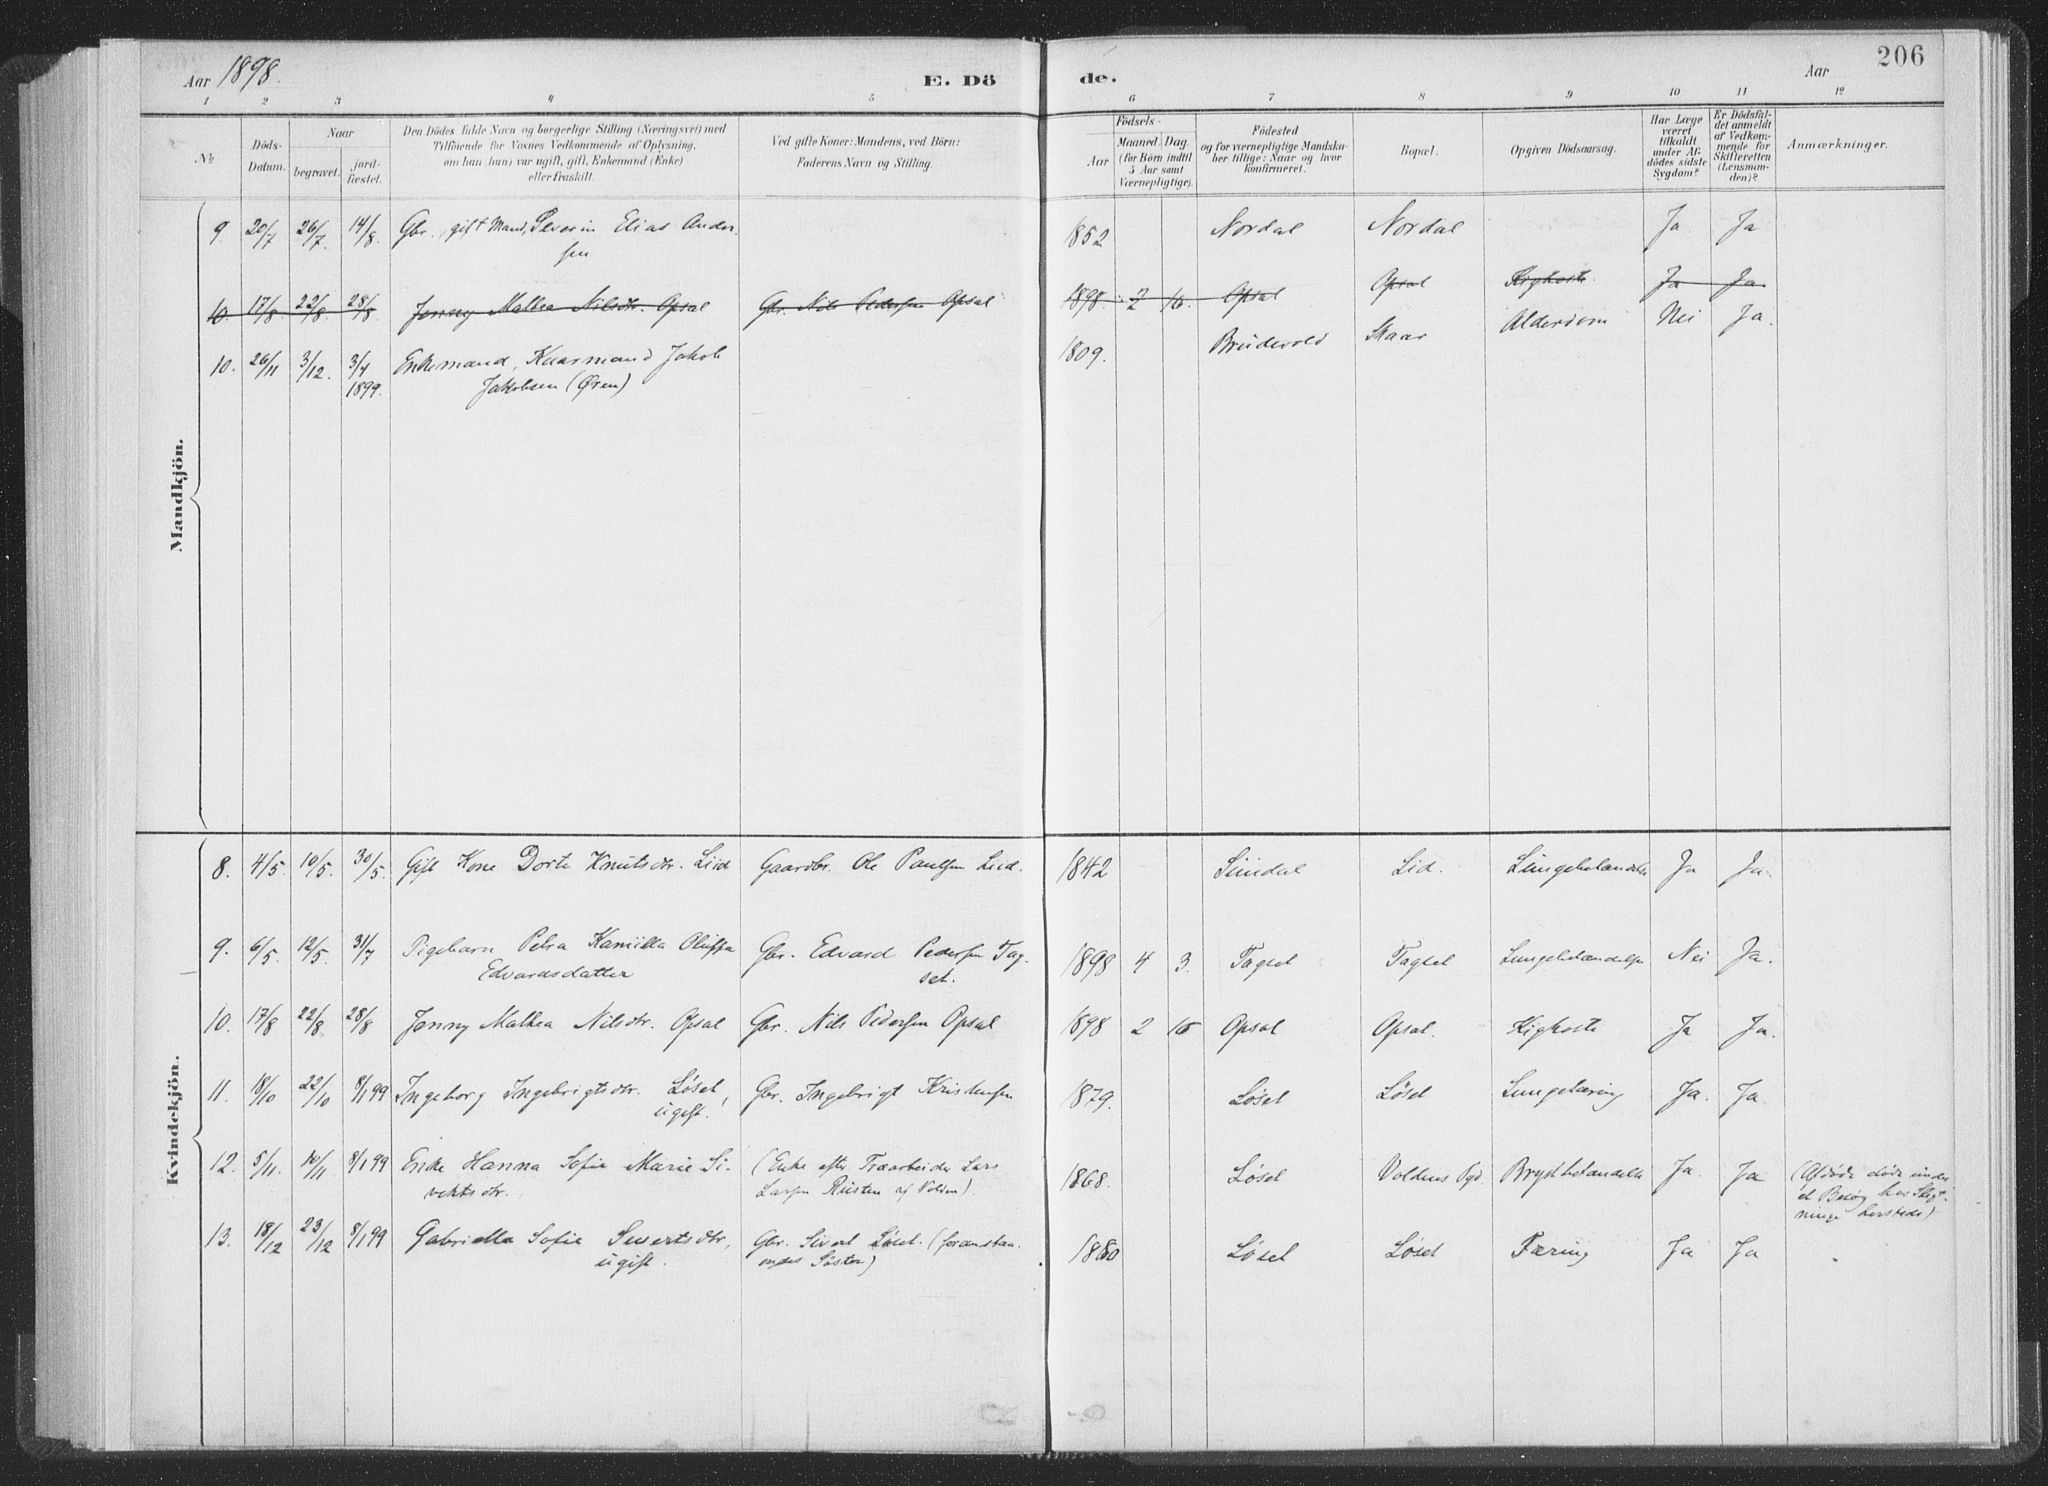 206
Aar 1898. E. Dö de. Aar
1 2 3 4 5 6 7 8 9 10 11 12
No
Döds-Datum.
Naar
begravet.
jord-fæstet.
Den Dödes fulde Navn og borgerlige Stilling (Næringsvei) med
Tilföiende for Voxnes Vedkommende af Oplysning,
om han (hun) var ugift, gift, Enkemand (Enke)
eller fraskilt.
Ved gifte Koner: Mandens, ved Börn:
Faderens Navn og Stilling.
Födsels-
Aar
Maaned. Dag.
(for Börn indtil
5 Aar samt
Værnepligtige).
Födested
og for værnepligtige Mandska-
ber tillige: Naar og hvor
konfirmeret.
Bopæl.
Opgiven Dödsaarsag.
Har Læge
været
tilkaldt
under Af-
dödes sidste
Sygdom?
Er Dödsfal-
det anmeldt
af Vedkom-
mende for
Skifteretten
(Lensman-
den)?
Anmærkninger.
Mandkjön.
9 20/7 26/7. 14/8. Gbr., gift Mand, Severin Elias Ander- 1852 Nordal Nordal Ja Ja
sen
10. 17/8 22/8. 28/8 Jenny Mathea Nilsdtr. Opsal Gbr. Nils Pedersen Opsal 1898 2 10. Opsal Opsal Kighoste. Ja Ja
10. 26/11 3/12. 3/4 Enkemand, Kaarmand Jakob 1809. Brudevold Skaar Alderdom Nei Ja.
1899. Jakobsen (Øren)
Kvindekjön.
8. 4/5. 10/5. 30/5. Gift Kone Dorte Knutsdtr. Liid Gaardbr. Ole Paulsen Liid. 1842 Sundal Lid. Lungebetændelse Ja Ja.
9. 6/5. 12/5. 31/7 Pigebarn Petra Kamilla Oluffa Gbr. Edvard Pedersen Tag- 1898 4 3. Tagset Tagset Lungebetændelse Nei Ja.
Edvardsdatter set.
10. 17/8 22/8. 28/8 Jenny Mathea Nilsdtr. Opsal Gbr. Nils Pedersen Opsal 1898 2 10 Opsal Opsal. Kighoste Ja Ja.
11. 18/10 22/10 8/1 99 Ingeborg Ingebrigtsdtr. Løset, Gbr. Ingebrigt Kristensen 1879. Løset Løset Lungetæring Ja. Ja
ugift.
12. 5/11. 10/11 8/1 99 Enke Hanna Sofie Marie Si- (Enke efter Træarbeider Lars 1868. Løset Voldens Pgd. Brystbetændelse Ja. Ja (Afdøde døde under
vertsdtr. Larsen Reisten af Volden). et Besøg hos Slegt-
ninge hersteds)
13. 18/12 23/12 8/1 99 Gabriella Sofie Sivertsdtr, Gbr. Sivert Løset. (foranstaa- 1880 Løset Løset Tæring Ja Ja
ugift. endes Søster)